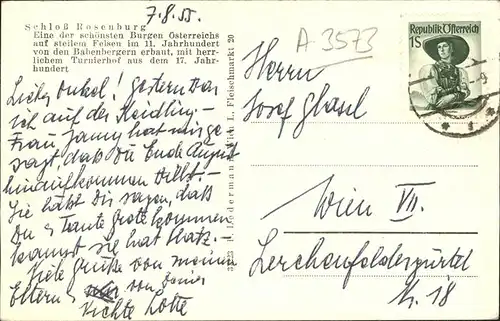 7.8.55.
Schloß Rosenburg
Eine der schönsten Burgen Österreichs
auf steilem Felsen im 11. Jahrhundert
von den Babenbergern erbaut, mit herr-
lichem Turnierhof aus dem 17. Jahr-
hundert
Lieber Onkel! Gestern war
ich auf der Reidling.
Frau Jamy hat mir ge-
sagt daß Du Ende August
hinaufkommen willst.-
Sie läßt Dir sagen, daß
Du u Tante Grete kommen
kannst sie hat Platz.
Viele Grüße von meinen
Eltern von Deiner
Nichte Lotte
3523 A. Ledermann, Wien I., Fleischmarkt 20
A 3573
Republik Österreich
1 S
Herrn
Josef Glasel
Wien VII.
Lerchenfeldergürtel
N. 18